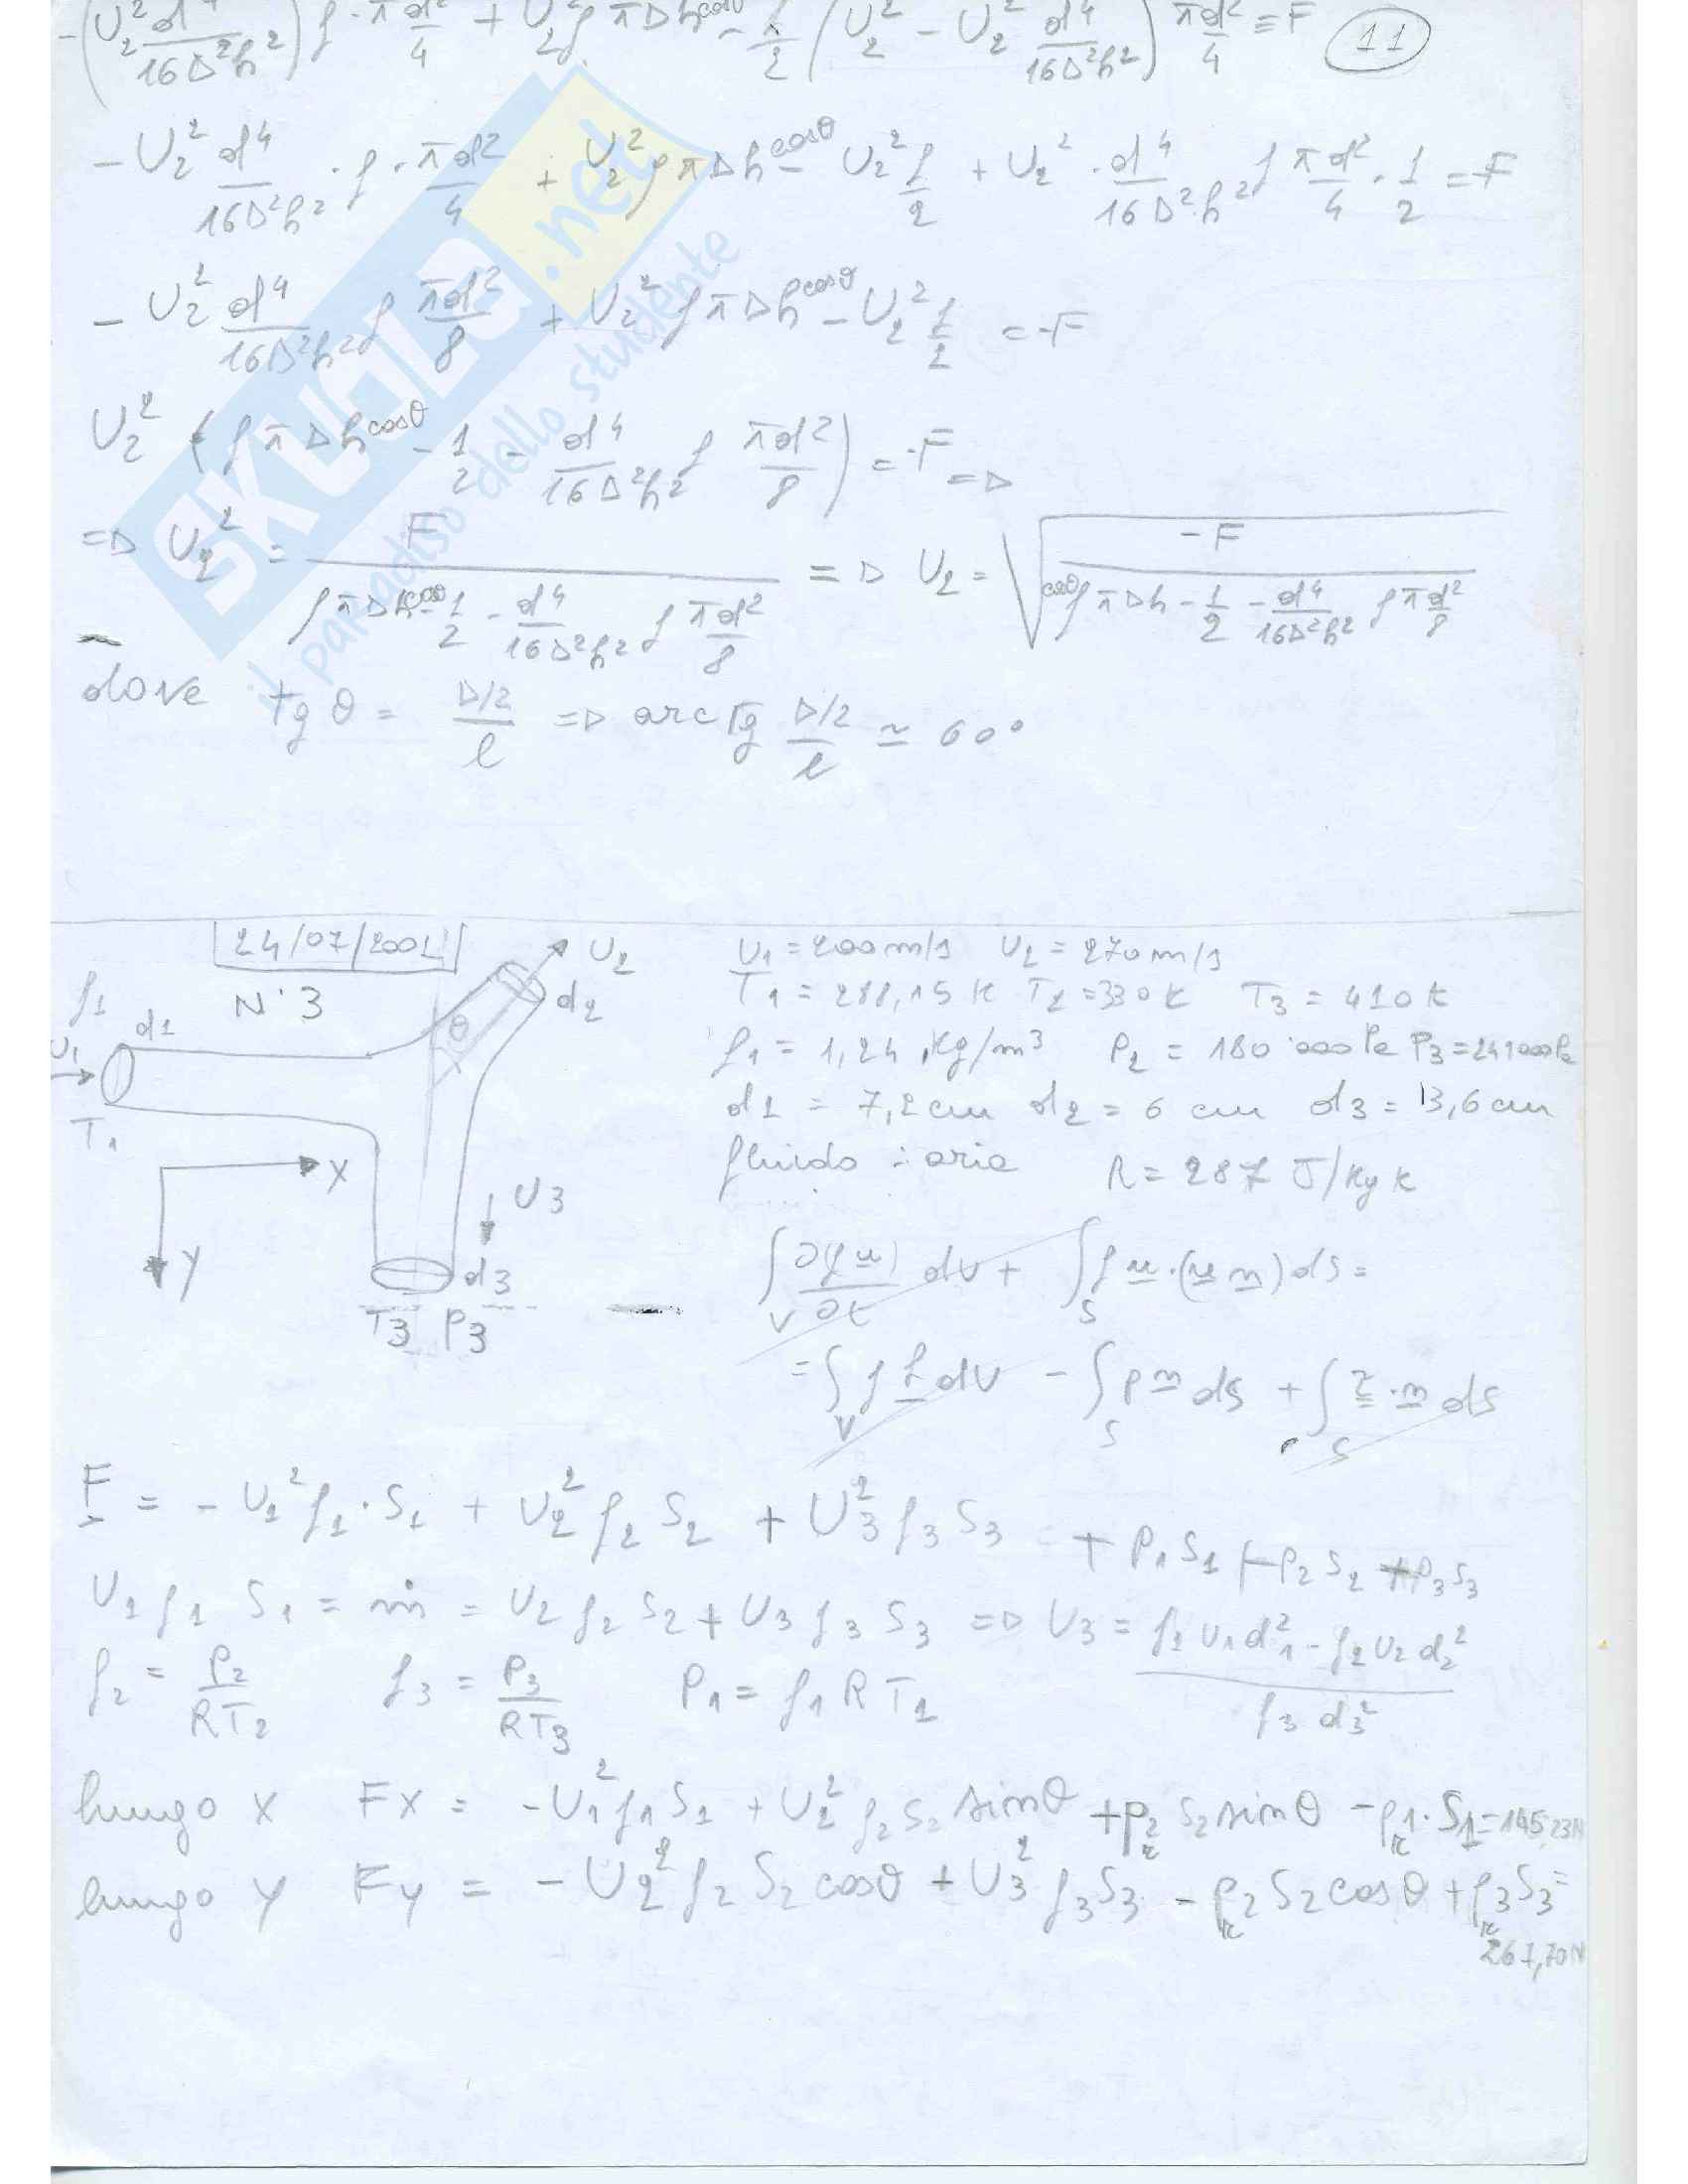 -(U₂² d⁴/16D²h²) ρ · πd²/4 + U₂² ρ π D h cosθ - ρ/2 (U₂² - U₂² d⁴/16D²h²) πd²/4 = F
11
- U₂² d⁴/16D²h² · ρ · πd²/4 + U₂² ρ π D h cosθ - U₂² ρ/2 + U₂² · d⁴/16D²h² ρ πd²/4 · 1/2 = -F
- U₂² d⁴/16D²h² ρ πd²/8 + U₂² ρ π D h cosθ - U₂² 1/2 = -F
U₂² (ρ π D h cosθ - 1/2 - d⁴/16D²h² ρ πd²/8) = -F =D
=D U₂² = F / (ρ π D h cosθ - 1/2 - d⁴/16D²h² ρ πd²/8) =D U₂ = √(-F / (cosθ ρ π D h - 1/2 - d⁴/16D²h² ρ π d²/8))
dove tg θ = D/2 / l =D arctg D/2 / l ≃ 60°
SKUOLA.net
il paradiso dello studente
N°3
U₂
d₂
θ
ρ₁
d₁
U₁
T₁
x
y
U₃
d₃
T₃ P₃
U₁ = 200 m/s U₂ = 270 m/s
T₁ = 288,15 K T₂ = 330 K T₃ = 410 K
ρ₁ = 1,24 Kg/m³ P₂ = 180 000 Pa P₃ = 241000 Pa
d₁ = 7,2 cm d₂ = 6 cm d₃ = 13,6 cm
fluido : aria R = 287 J/Kg K
∫V ∂(ρu)/∂t dV + ∫S ρ u · (u n) dS =
= ∫V ρ f dV - ∫S p n dS + ∫S τ · n dS
F = - U₁² ρ₁ · S₁ + U₂² ρ₂ S₂ + U₃² ρ₃ S₃ + P₁ S₁ + P₂ S₂ + P₃ S₃
U₁ ρ₁ S₁ = ṁ = U₂ ρ₂ S₂ + U₃ ρ₃ S₃ =D U₃ = (ρ₁ U₁ d₁² - ρ₂ U₂ d₂²) / ρ₃ d₃²
ρ₂ = P₂/RT₂ ρ₃ = P₃/RT₃ P₁ = ρ₁ R T₁
lungo x Fx = - U₁² ρ₁ S₁ + U₂² ρ₂ S₂ sinθ + p₂ᵣ S₂ sinθ - p₁ᵣ · S₁ = -145,23N
lungo y Fy = - U₂² ρ₂ S₂ cosθ + U₃² ρ₃ S₃ - p₂ᵣ S₂ cosθ + p₃ᵣ S₃ =
267,70N